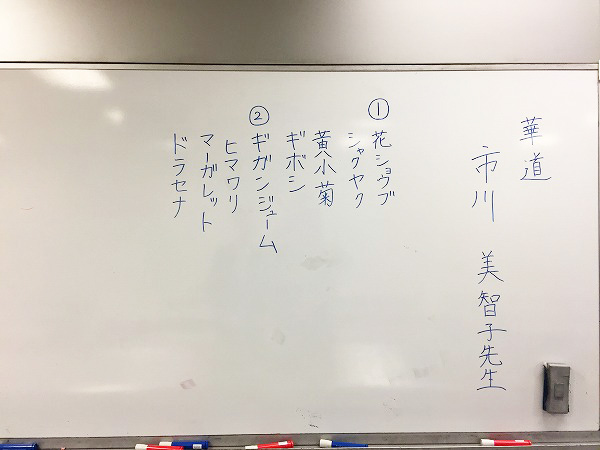 華道
市川 美智子先生
① 花ショウブ
シャクヤク
黄小菊
ギボシ
② ギガンジューム
ヒマワリ
マーガレット
ドラセナ